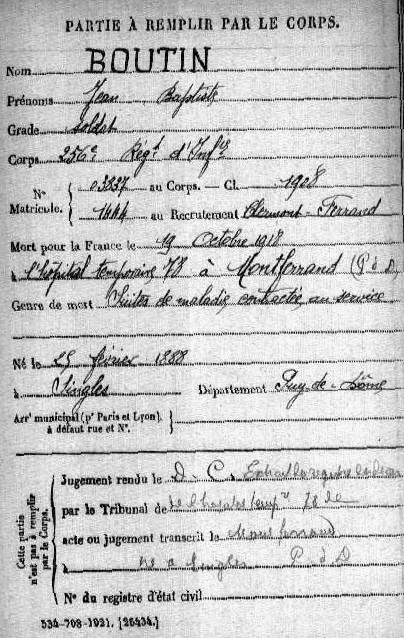 PARTIE À REMPLIR PAR LE CORPS.
Nom BOUTIN
Prénoms Jean Baptiste
Grade Soldat
Corps 256e Régt d'Infie
N° Matricule. { 03837 au Corps. — Cl. 1908
1444 au Recrutement Clermont-Ferrand
Mort pour la France le 19 octobre 1918
à l'hôpital temporaire 78 à Montferrand (P d D)
Genre de mort Suites de maladie contractée au service
Né le 25 février 1888
à Singles Département Puy-de-Dôme
Arrt municipal (pr Paris et Lyon), à défaut rue et N°.
Cette partie n'est pas à remplir par le Corps.
Jugement rendu le D. C.
par le Tribunal de 78 de
acte ou jugement transcrit le
à né à Singles P d D
N° du registre d'état civil
534-708-1921. [26434.]